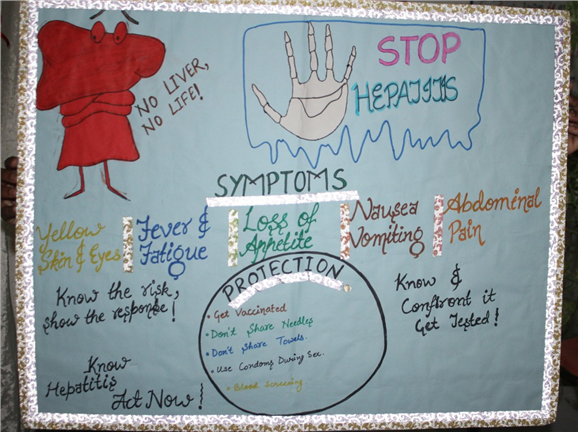 NO LIVER,
NO LIFE!
STOP
HEPATITIS
SYMPTOMS
Yellow
Skin & Eyes
Fever &
Fatigue
Loss of
Aphetite
Nausea
Vomiting
Abdominal
Pain
Know the risk,
show the response!
Know
Hepatitis
Act Now!
PROTECTION
• Get Vaccinated
• Don't Share Needles
• Don't Share Towels.
• Use Condoms During Sex.
• Blood Screening.
Know &
Confront it
Get Tested!